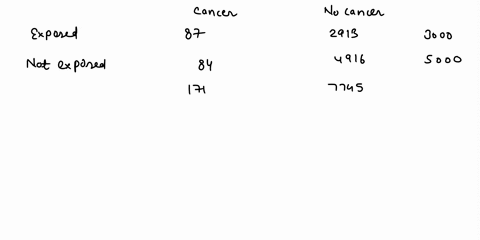 Cancer No Cancer
Exposed 87 2913 3000
Not exposed 84 4916 5000
171 7745